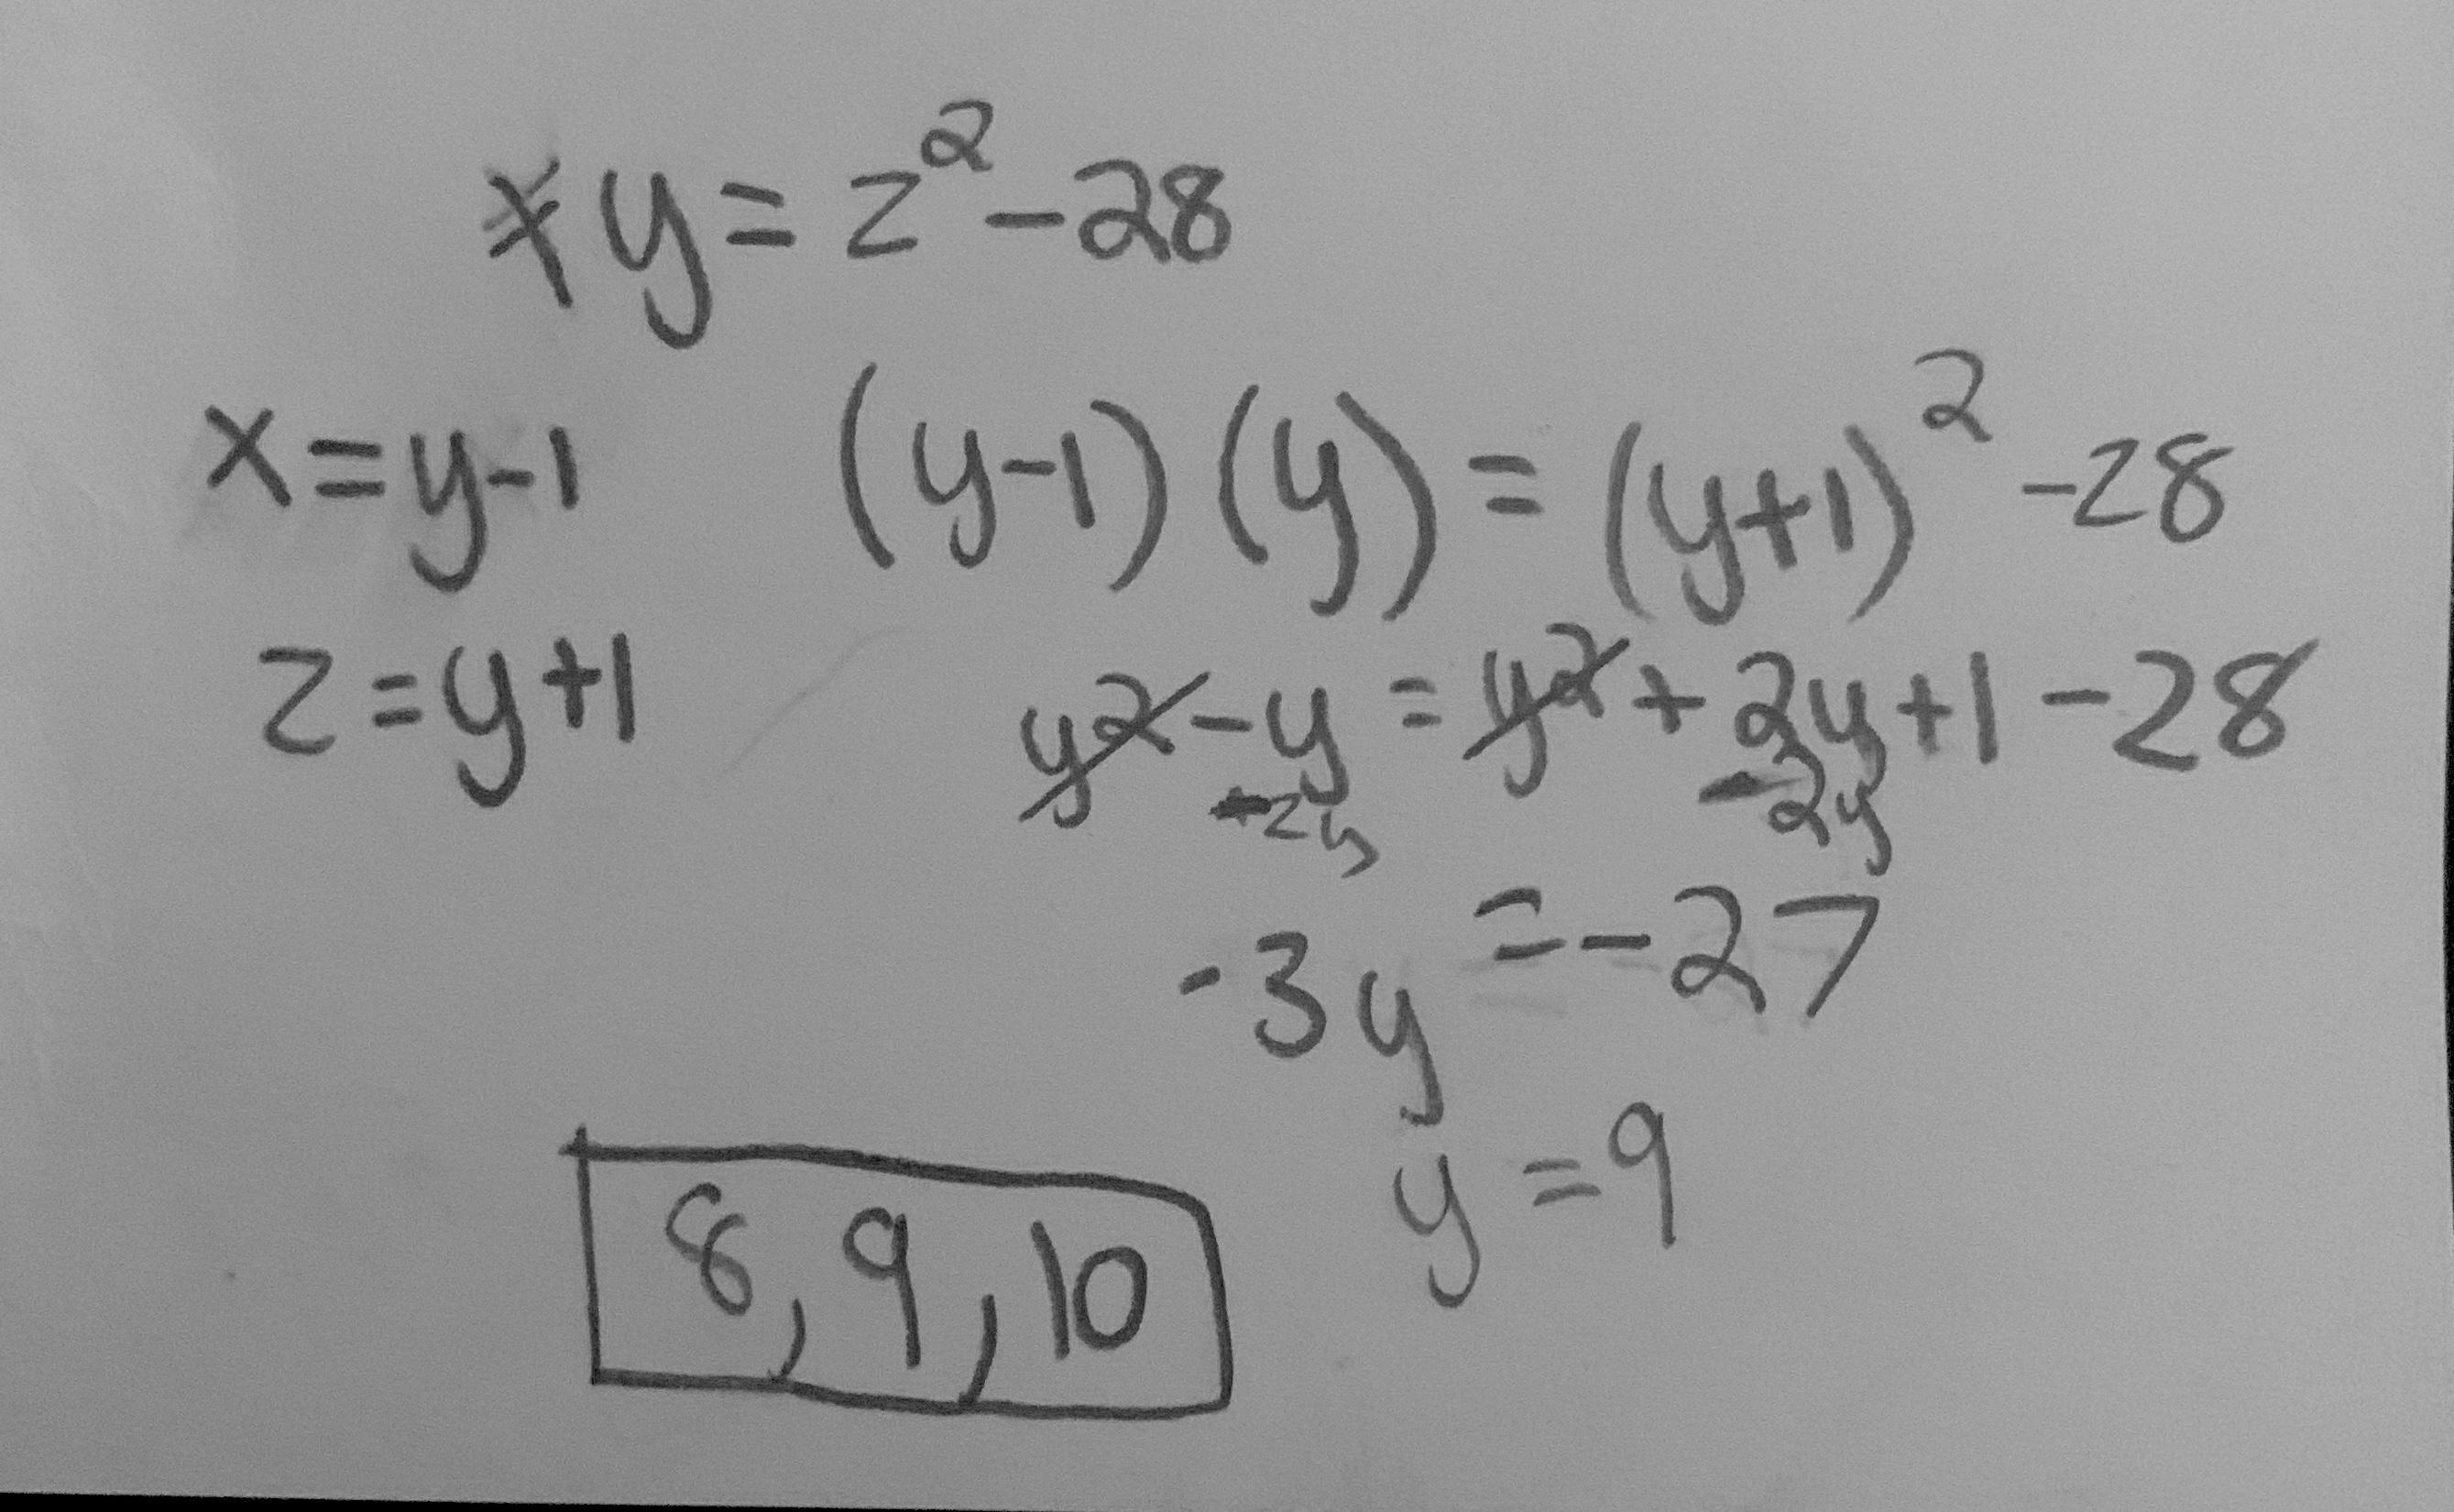 xy = z² - 28
x = y - 1
(y - 1)(y) = (y + 1)² - 28
z = y + 1
y² - y = y² + 2y + 1 - 28
-2y -2y
-3y = -27
y = 9
8, 9, 10